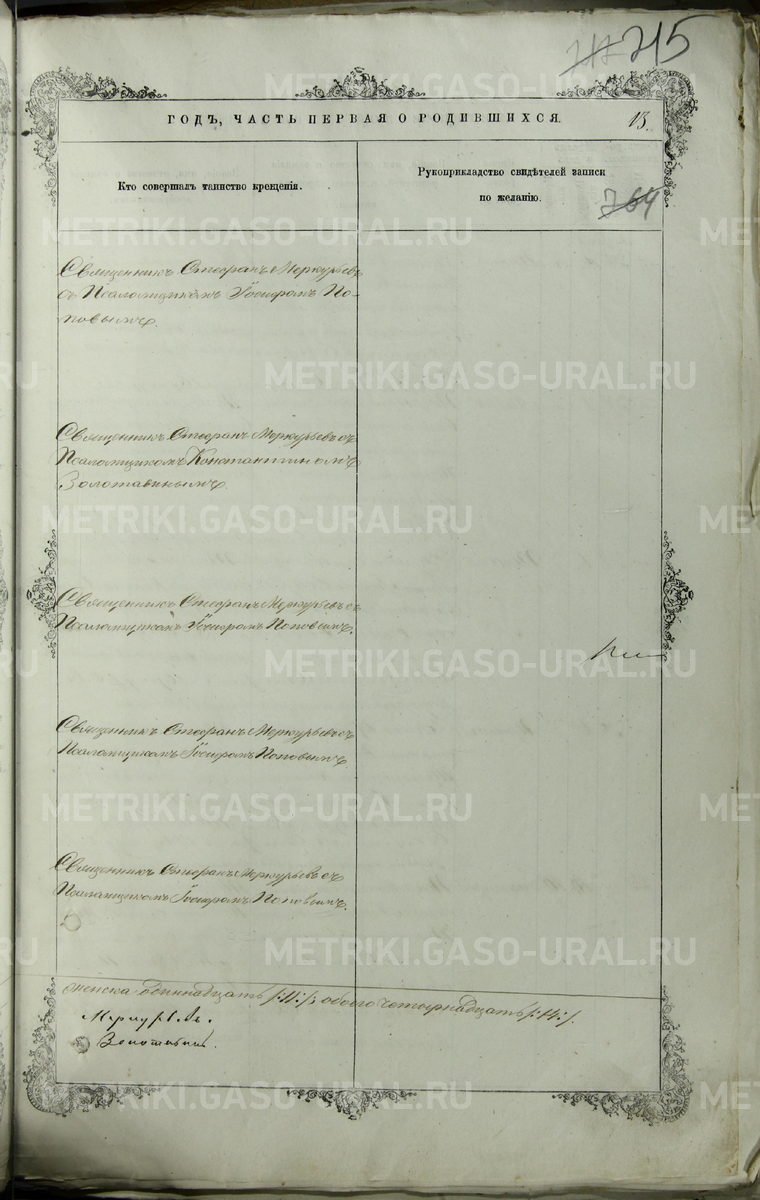 715
ГОДЪ, ЧАСТЬ ПЕРВАЯ О РОДИВШИХСЯ.
13.
Кто совершалъ таинство крещенія.
Рукоприкладство свидѣтелей записи
по желанію.
764
Священникъ Стефанъ Меркурьевъ
съ Псаломщикомъ Іосифомъ По-
повымъ.
Священникъ Стефанъ Меркурьевъ съ
Псаломщикомъ Константиномъ
Золотавинымъ.
Священникъ Стефанъ Меркурьевъ съ
Псаломщикомъ Іосифомъ Поповымъ.
Священникъ Стефанъ Меркурьевъ съ
Псаломщикомъ Іосифомъ Поповымъ.
Священникъ Стефанъ Меркурьевъ съ
Псаломщикомъ Іосифомъ Поповымъ.
женска одиннадцать /:11:/; обоего четырнадцать /:14:/.
Меркурьевъ.
METRIKI.GASO-URAL.RU